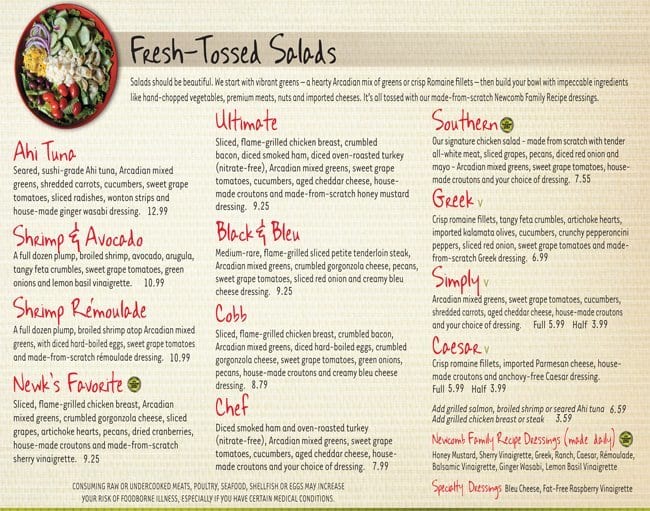 Fresh-Tossed Salads
Salads should be beautiful. We start with vibrant greens – a hearty Arcadian mix of greens or crisp Romaine fillets – then build your bowl with impeccable ingredients
like hand-chopped vegetables, premium meats, nuts and imported cheeses. It's all tossed with our made-from-scratch Newcomb Family Recipe dressings.
Ahi Tuna
Seared, sushi-grade Ahi tuna, Arcadian mixed
greens, shredded carrots, cucumbers, sweet grape
tomatoes, sliced radishes, wonton strips and
house-made ginger wasabi dressing. 12.99
Shrimp & Avocado
A full dozen plump, broiled shrimp, avocado, arugula,
tangy feta crumbles, sweet grape tomatoes, green
onions and lemon basil vinaigrette. 10.99
Shrimp Rémoulade
A full dozen plump, broiled shrimp atop Arcadian mixed
greens, with diced hard-boiled eggs, sweet grape tomatoes
and made-from-scratch rémoulade dressing. 10.99
Newk's Favorite
Sliced, flame-grilled chicken breast, Arcadian
mixed greens, crumbled gorgonzola cheese, sliced
grapes, artichoke hearts, pecans, dried cranberries,
house-made croutons and made-from-scratch
sherry vinaigrette. 9.25
Ultimate
Sliced, flame-grilled chicken breast, crumbled
bacon, diced smoked ham, diced oven-roasted turkey
(nitrate-free), Arcadian mixed greens, sweet grape
tomatoes, cucumbers, aged cheddar cheese, house-
made croutons and made-from-scratch honey mustard
dressing. 9.25
Black & Bleu
Medium-rare, flame-grilled sliced petite tenderloin steak,
Arcadian mixed greens, crumbled gorgonzola cheese, pecans,
sweet grape tomatoes, sliced red onion and creamy bleu
cheese dressing. 9.25
Cobb
Sliced, flame-grilled chicken breast, crumbled bacon,
Arcadian mixed greens, diced hard-boiled eggs, crumbled
gorgonzola cheese, sweet grape tomatoes, green onions,
pecans, house-made croutons and creamy bleu cheese
dressing. 8.79
Chef
Diced smoked ham and oven-roasted turkey
(nitrate-free), Arcadian mixed greens, sweet grape
tomatoes, cucumbers, aged cheddar cheese, house-
made croutons and your choice of dressing. 7.99
Southern
Our signature chicken salad - made from scratch with tender
all-white meat, sliced grapes, pecans, diced red onion and
mayo - Arcadian mixed greens, sweet grape tomatoes, house-
made croutons and your choice of dressing. 7.55
Greek V
Crisp romaine fillets, tangy feta crumbles, artichoke hearts,
imported kalamata olives, cucumbers, crunchy pepperoncini
peppers, sliced red onion, sweet grape tomatoes and made-
from-scratch Greek dressing. 6.99
Simply V
Arcadian mixed greens, sweet grape tomatoes, cucumbers,
shredded carrots, aged cheddar cheese, house-made croutons
and your choice of dressing. Full 5.99 Half 3.99
Caesar V
Crisp romaine fillets, imported Parmesan cheese, house-
made croutons and anchovy-free Caesar dressing.
Full 5.99 Half 3.99
Add grilled salmon, broiled shrimp or seared Ahi tuna 6.59
Add grilled chicken breast or steak 3.59
Newcomb Family Recipe Dressings (made daily)
Honey Mustard, Sherry Vinaigrette, Greek, Ranch, Caesar, Rémoulade,
Balsamic Vinaigrette, Ginger Wasabi, Lemon Basil Vinaigrette
Specialty Dressings Bleu Cheese, Fat-Free Raspberry Vinaigrette
CONSUMING RAW OR UNDERCOOKED MEATS, POULTRY, SEAFOOD, SHELLFISH OR EGGS MAY INCREASE
YOUR RISK OF FOODBORNE ILLNESS, ESPECIALLY IF YOU HAVE CERTAIN MEDICAL CONDITIONS.